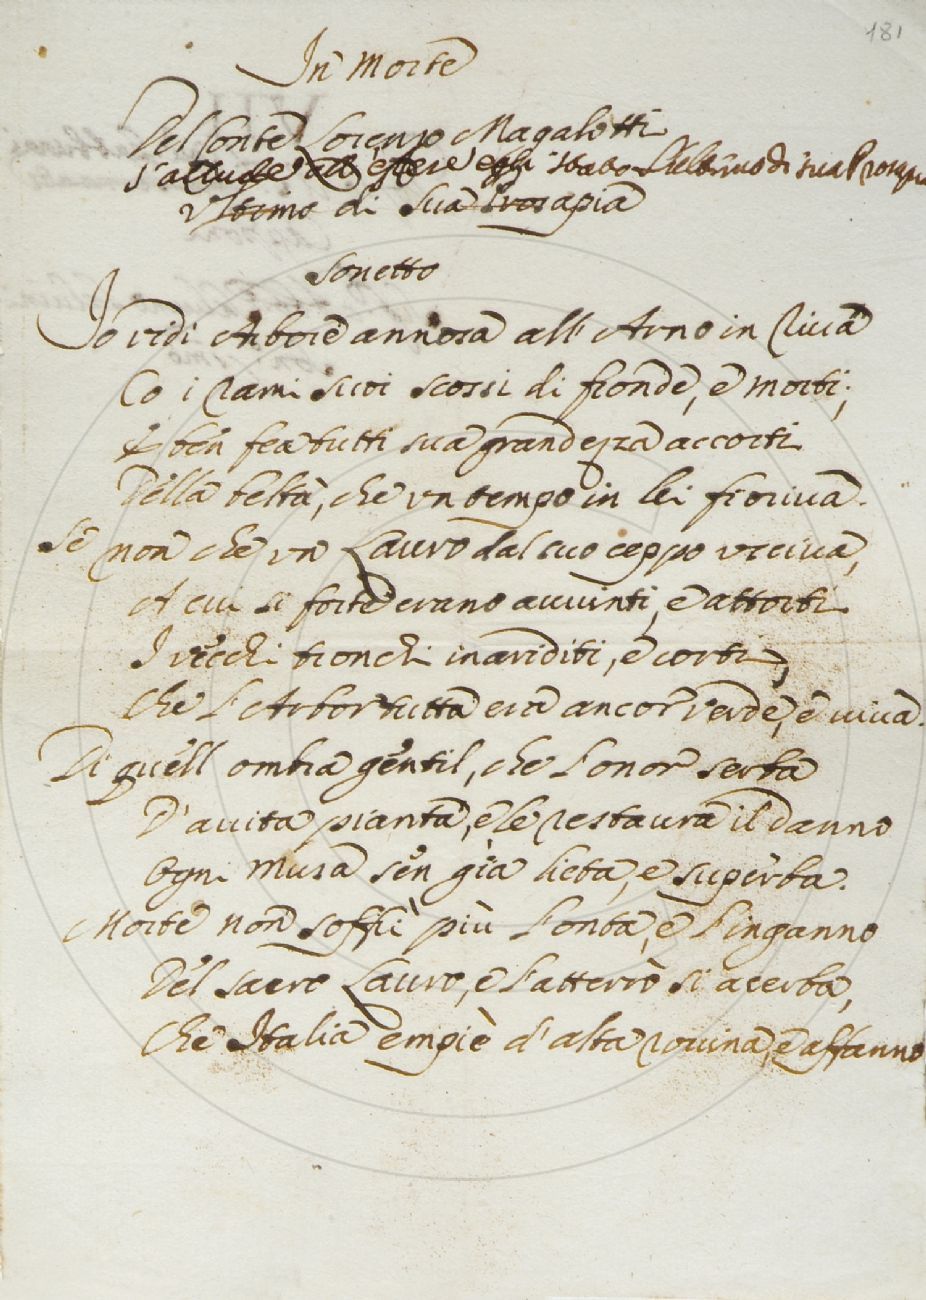 181
In Morte
Del Conte Lorenzo Magalotti
s'allude all'essere egli stato l'ultimo di sua Prosapia
Vltimo di sua Prosapia
Sonetto
Io vidi Arbore annosa all'Arno in riua
Co i rami suoi scossi di fronde, e morti;
E ben fea tutti sua grandezza accorti
Della beltà, che vn tempo in lei fioriua.
Se non che vn Lauro dal suo ceppo vsciua,
A cui sì forte erano auuinti, e attorti
I vecchi tronchi inariditi, e corti,
Che l'Arbor tutta era ancor verde, e uiua.
Di quell ombra gentil, che l'onor serba
D'auita pianta, e le restaura il danno
Ogni Musa sen gìa lieta, e superba.
Morte non soffrì più l'onta, e l'inganno
Del sacro Lauro, e l'atterrò sì acerba,
Che Italia empiè d'alta rouina, e affanno